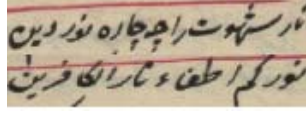 نار شهوت را چه چاره نور دین
نورکم اطفاء نار الکافرین